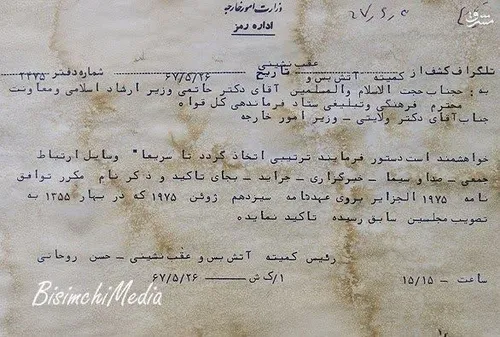 وزارت امور خارجه
اداره رمز
۲۷٫۵٫۵
مشرق
تلگراف کشف از کمیته آتش بس و عقب نشینی تاریخ ۶۷/۵/۲۶ شماره دفتر ۲۴۷۵
به : جناب حجت الاسلام والمسلمین آقای دکتر خاتمی وزیر ارشاد اسلامی ومعاونت
محترم فرهنگی وتبلیغی ستاد فرماندهی کل قوا ه
جناب آقای دکتر ولایتی ــ وزیر امور خارجه
خواهشمند است دستور فرمایند ترتیبی اتخاذ گردد تا سریعا" وسایل ارتباط
جمعی ــ صدا و سیما ــ خبرگزاری ــ جراید ــ بجای تاکید و ذکر نام مکرر توافق
نامه ۱۹۷۵ الجزایر بروی عهدنامه سیزدهم ژوئن ۱۹۷۵ که در بهار ۱۳۵۵ به
تصویب مجلسین سابق رسیده تاکید نمایده
رئیس کمیته آتش بس و عقب نشینی ــ حسن روحانی
ساعت ــ ۱۵/۱۵ ۱/ک ش ــــ ۶۷/۵/۲۶
BisimchiMedia